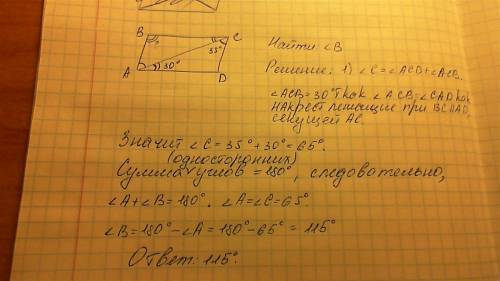 B
C
35°
30°
A
D
Найти: ∠B
Решение: 1) ∠C = ∠ACD + ∠ACB.
∠ACB = 30° т как ∠ACB = ∠CAD как
накрест лежащие при BC||AD,
секущей AC.
Значит ∠C = 35° + 30° = 65°.
(односторонних)
Сумма углов = 180°, следовательно,
∠A + ∠B = 180°. ∠A = ∠C = 65°.
∠B = 180° - ∠A = 180° - 65° = 115°
Ответ: 115°.